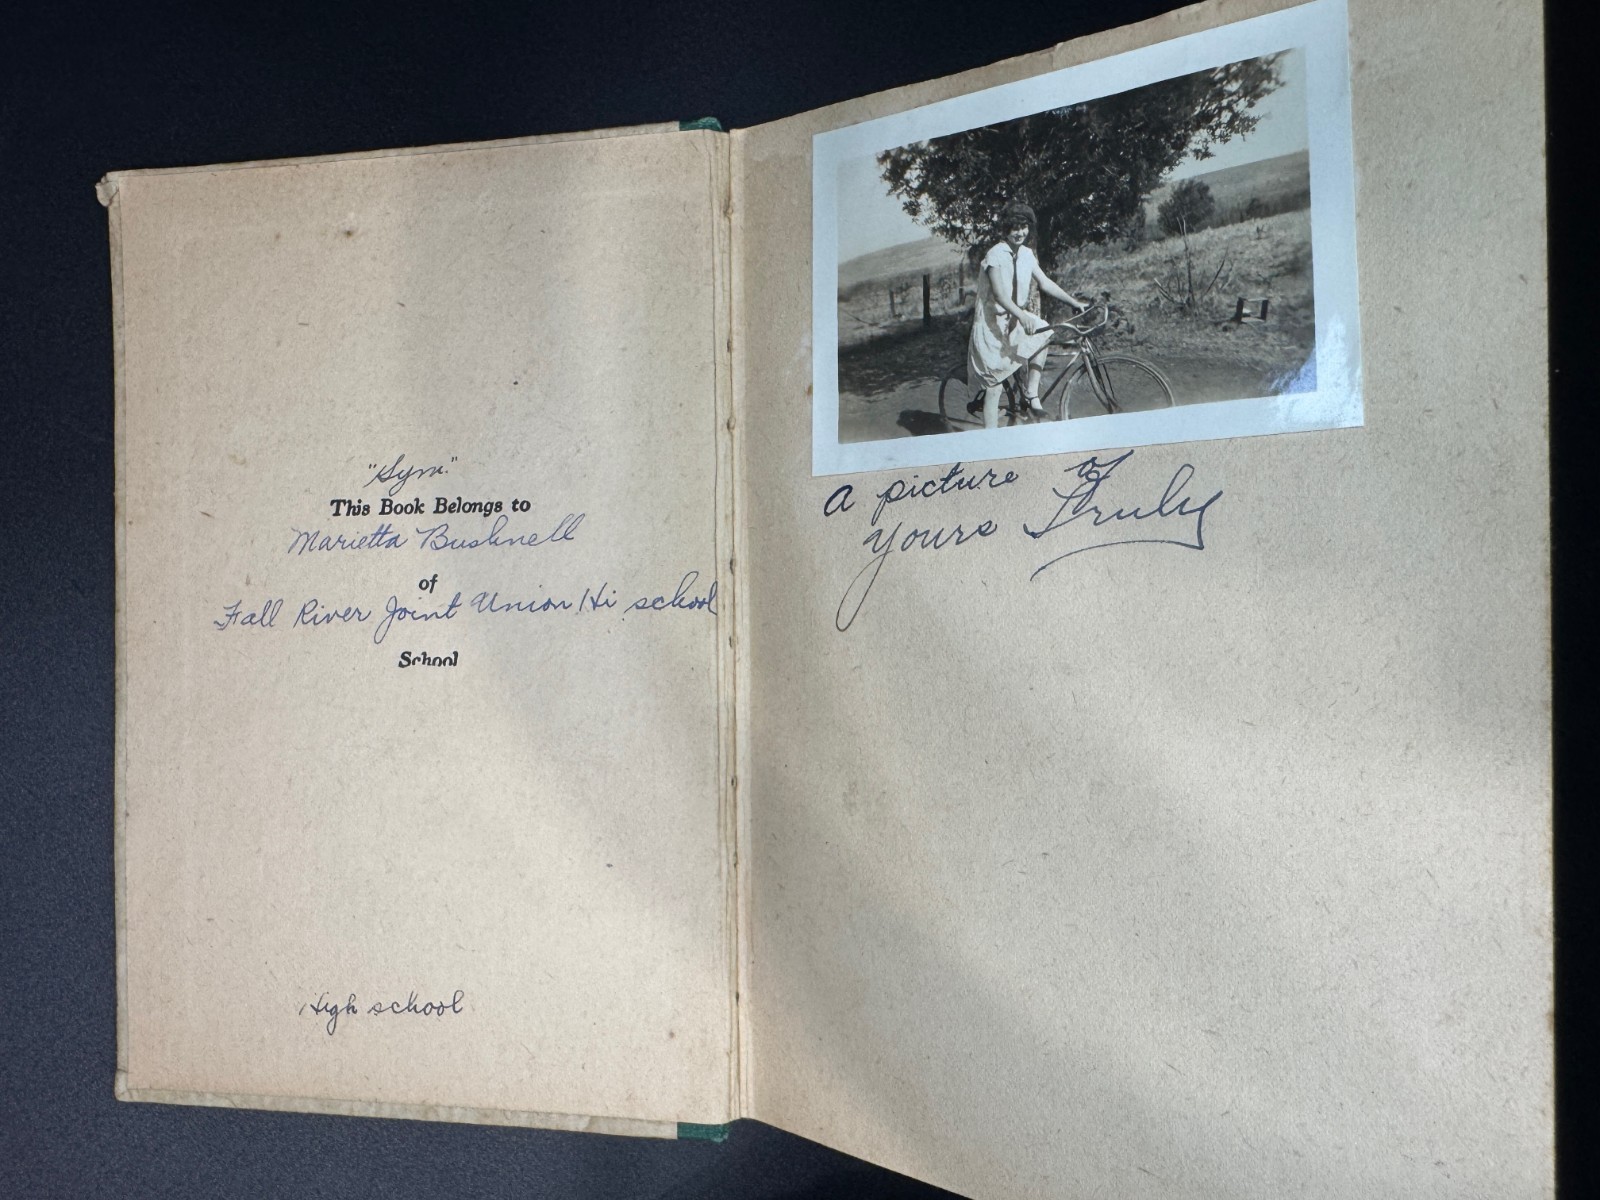 "Sym."
This Book Belongs to
Marietta Bushnell
of
Fall River Joint Union Hi school
School
High school
a picture of
Yours Truly